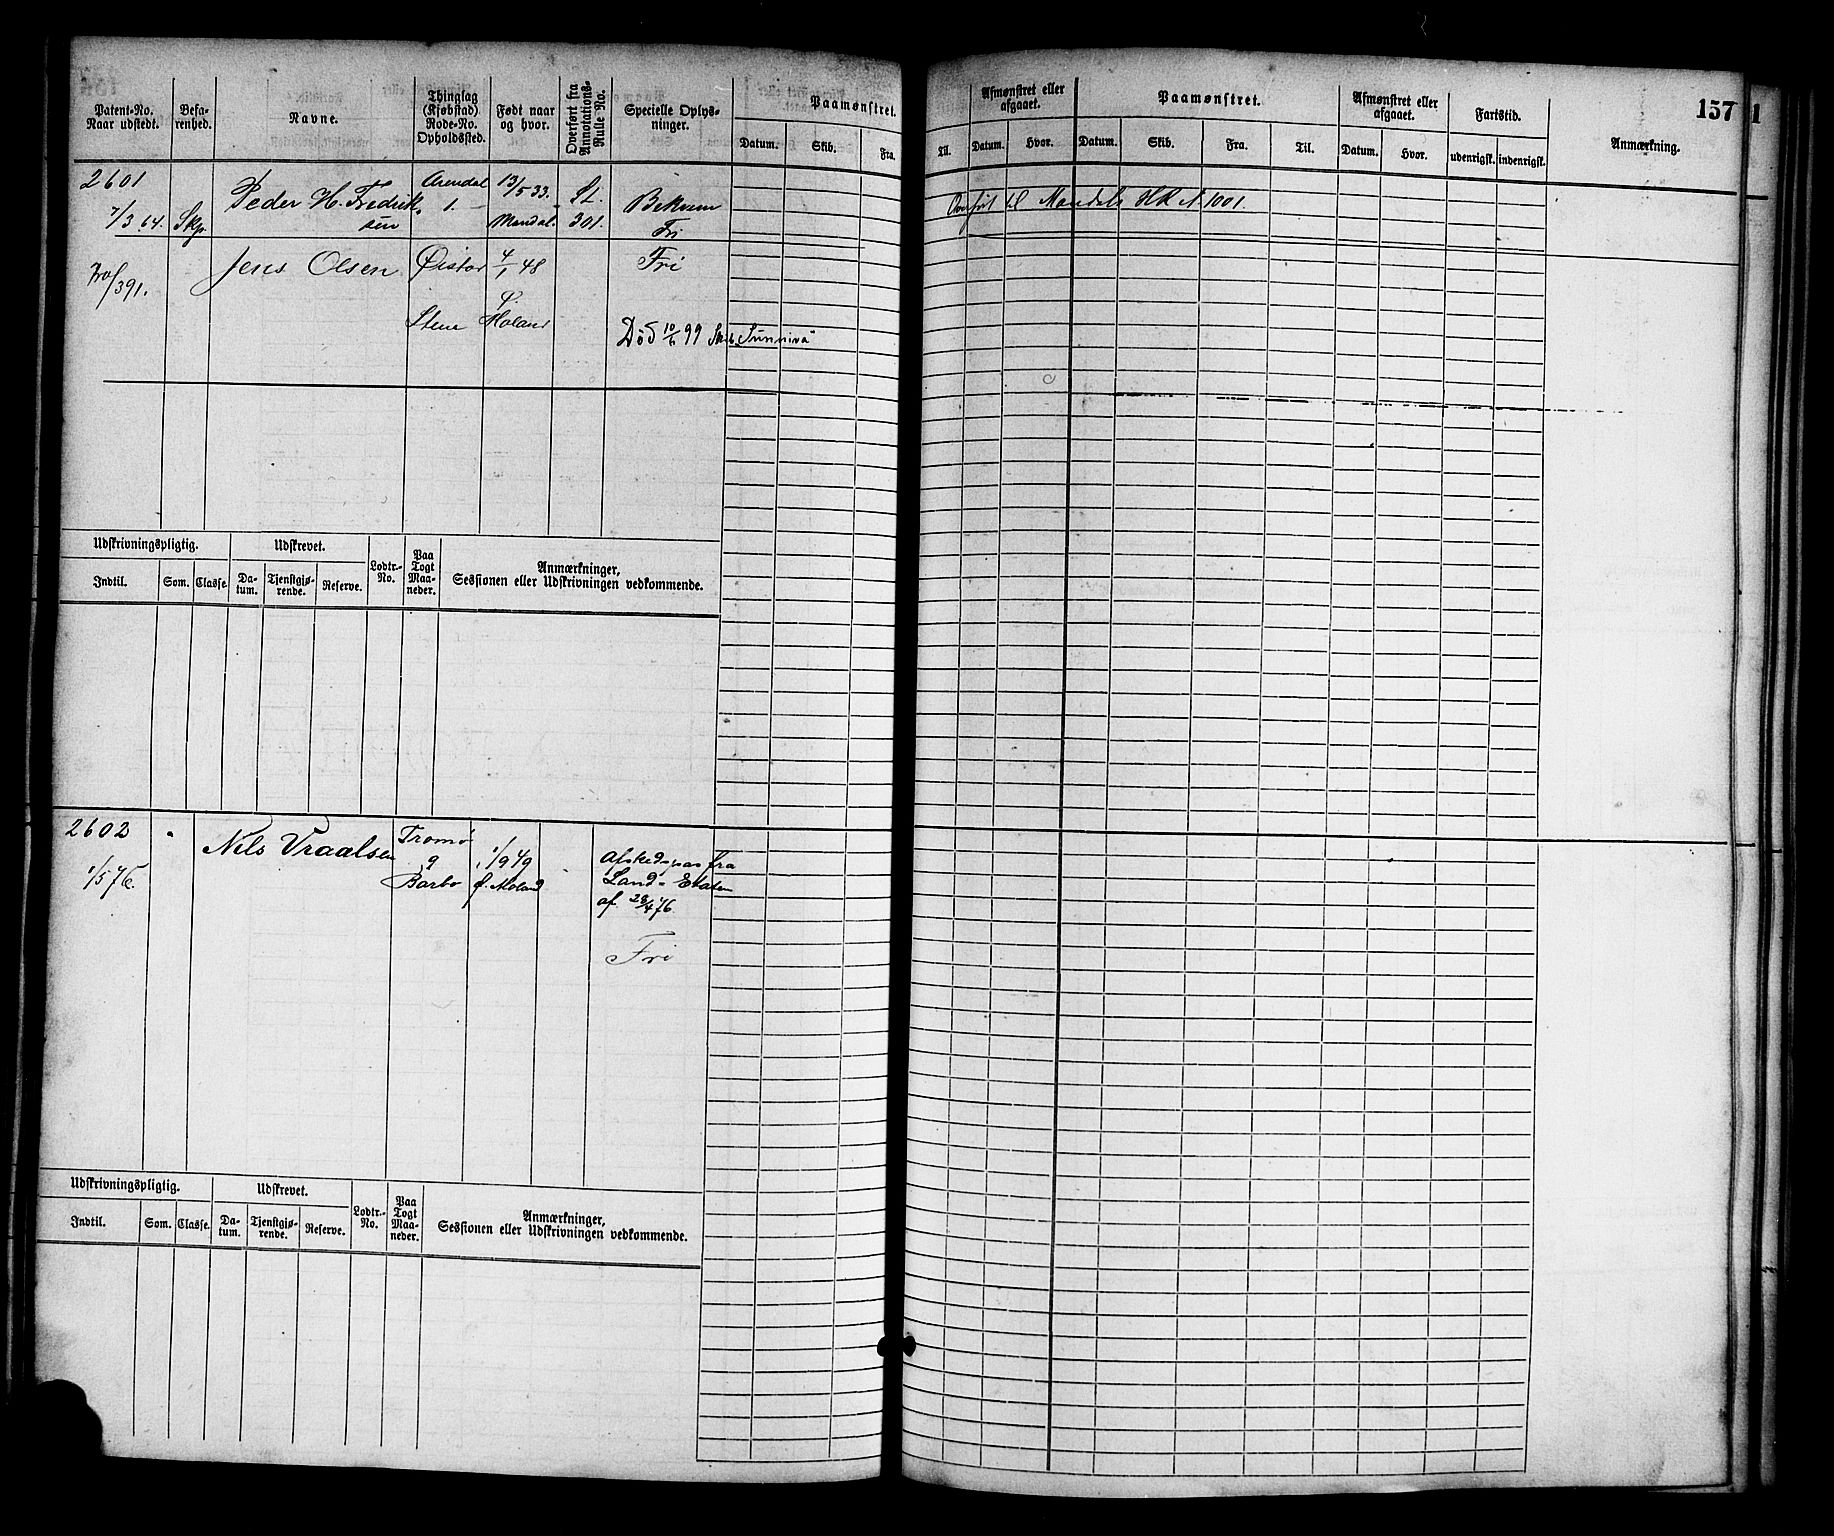 157
Patent-No. Naar udstedt.
Befarenhed.
Navne.
Thinglag (Kjøbstad) Rode-No. Opholdssted.
Født naar og hvor.
Overført fra Annotations-Rulle No.
Specielle Oplysninger.
Paamønstret.
Datum. Skib. Fra. Til.
Afmønstret eller afgaaet.
Datum. Hvor.
Paamønstret.
Datum. Skib. Fra. Til.
Afmønstret eller afgaaet.
Datum. Hvor.
Fartstid.
udenrigsk. indenrigsk.
Anmærkning.
2601 Arendal 13/5 33.
Peder H. Fredrik- 1. Bekvem
7/3 64. Skp. sen Mandal. 301. Fri
Overført til Mandals HR 1001.
Jens Olsen 4/1 48 Fri
391.
Død 10/6 99 Skib. Sunniva
Udskrivningspligtig. Udskrevet. Lodtr.-No. Paa Togt Maaneder. Anmærkninger, Sessionen eller Udskrivningen vedkommende.
Indtil. Som. Classe. Datum. Tjenstgjørende. Reserve.
2602 Tromø
Nils Vraalsen 9 1/9 49 Afskedspas fra
1/5 76. Barbo Ø. Moland Land-Etaten
af 28/4 76.
Fri
Udskrivningspligtig. Udskrevet. Lodtr.-No. Paa Togt Maaneder. Anmærkninger, Sessionen eller Udskrivningen vedkommende.
Indtil. Som. Classe. Datum. Tjenstgjørende. Reserve.